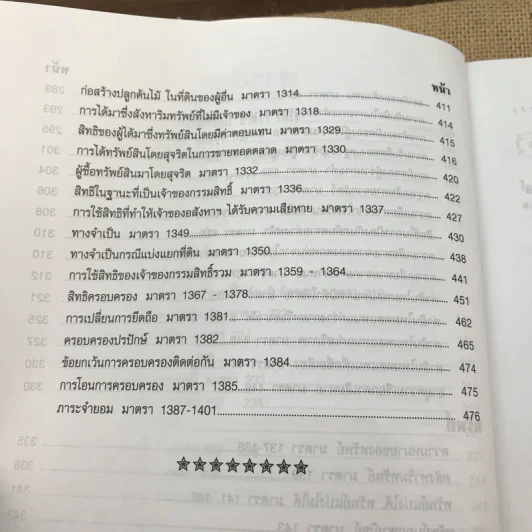 หน้า
ก่อสร้างปลูกต้นไม้ ในที่ดินของผู้อื่น มาตรา 1314 411
การได้มาซึ่งสังหาริมทรัพย์ที่ไม่มีเจ้าของ มาตรา 1318 414
สิทธิของผู้ได้มาซึ่งทรัพย์สินโดยมีค่าตอบแทน มาตรา 1329 415
การได้ทรัพย์สินโดยสุจริตในการขายทอดตลาด มาตรา 1330 416
ผู้ซื้อทรัพย์สินมาโดยสุจริต มาตรา 1332 420
สิทธิในฐานะที่เป็นเจ้าของกรรมสิทธิ์ มาตรา 1336 422
การใช้สิทธิที่ทำให้เจ้าของอสังหาฯ ได้รับความเสียหาย มาตรา 1337 427
ทางจำเป็น มาตรา 1349 430
ทางจำเป็นกรณีแบ่งแยกที่ดิน มาตรา 1350 438
การใช้สิทธิของเจ้าของกรรมสิทธิ์รวม มาตรา 1359 - 1364 441
สิทธิครอบครอง มาตรา 1367 - 1378 451
การเปลี่ยนการยึดถือ มาตรา 1381 462
ครอบครองปรปักษ์ มาตรา 1382 465
ข้อยกเว้นการครอบครองติดต่อกัน มาตรา 1384 474
การโอนการครอบครอง มาตรา 1385 475
ภาระจำยอม มาตรา 1387-1401 476